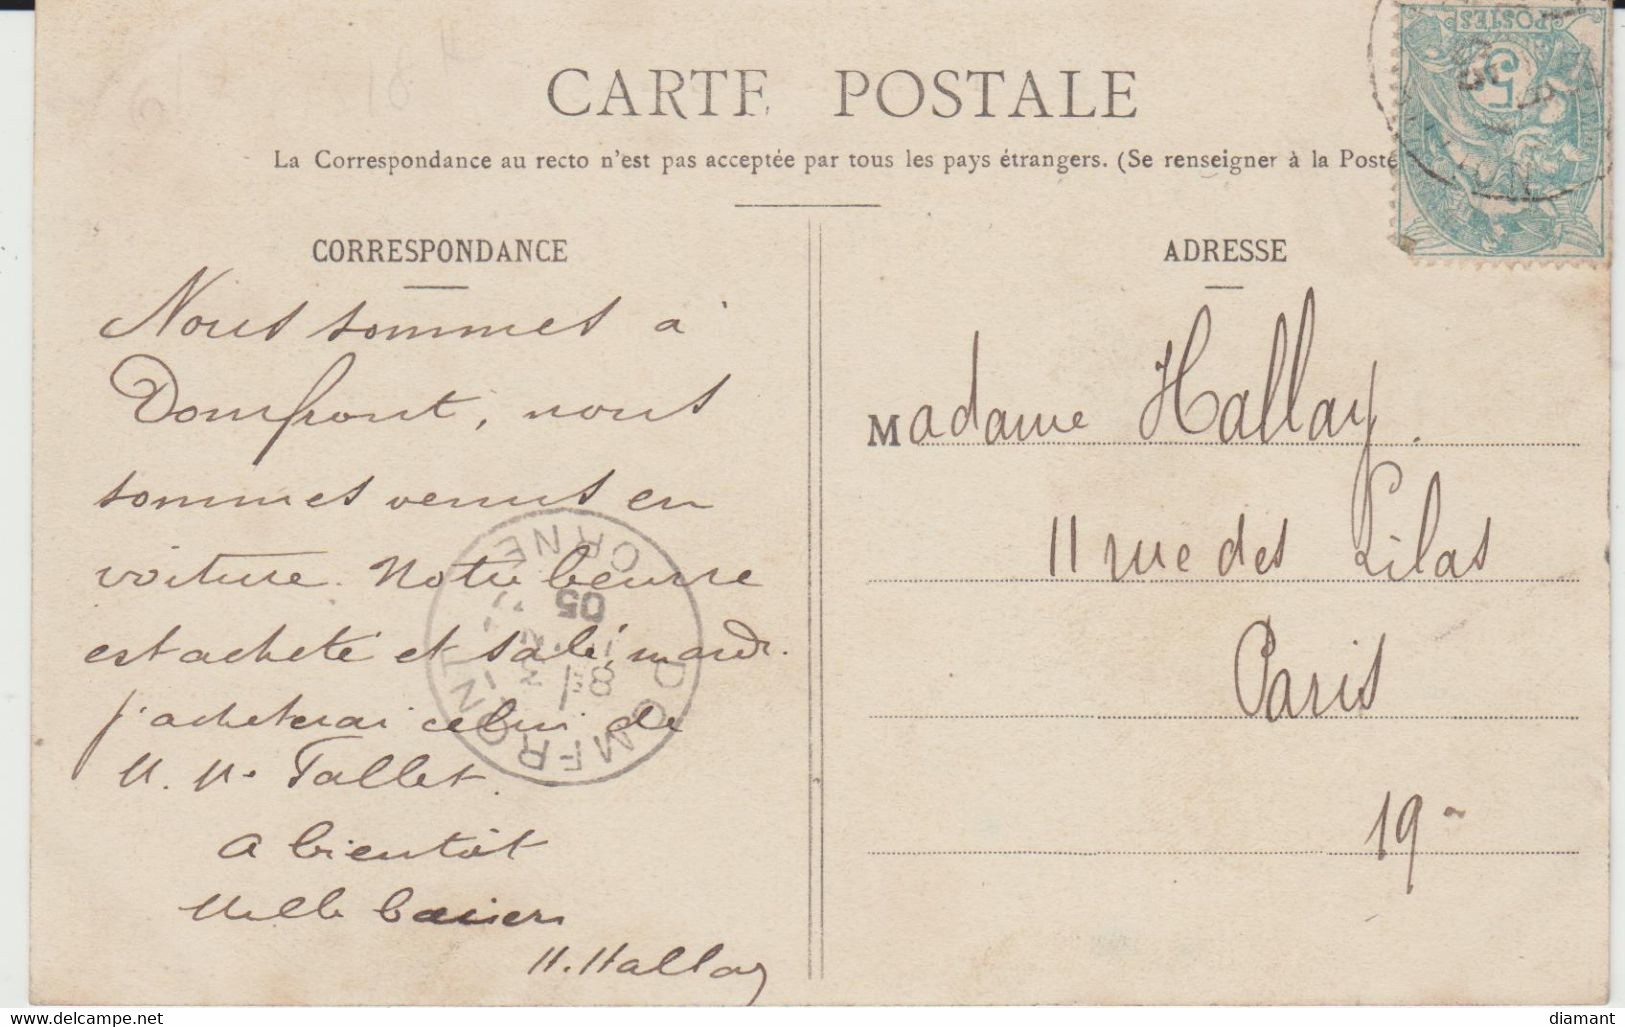 CARTE POSTALE
La Correspondance au recto n'est pas acceptée par tous les pays étrangers. (Se renseigner à la Poste
CORRESPONDANCE
Nous sommes à
Domfront, nous
sommes venus en
voiture. Notre beurre
est acheté et salé, mardi
j'acheterai celui de
M. Me Tallet.
A bientôt
Mille baisers
H. Hallay
DOMFRONT
ORNE
05
ADRESSE
Madame Hallay.
11 rue des Lilas
Paris
19e
POSTES
5
www.delcampe.net
diamant